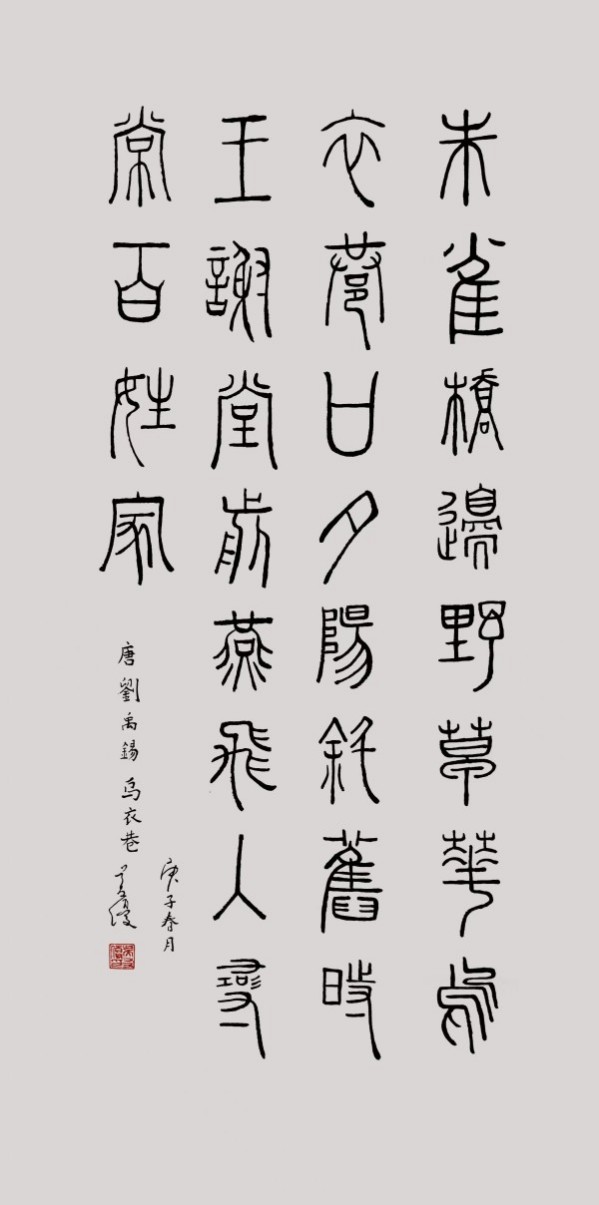 朱雀橋邊野草華烏
衣巷口夕陽斜舊時
王謝堂前燕飛入尋
常百姓家
唐劉禹錫烏衣巷
庚子春月